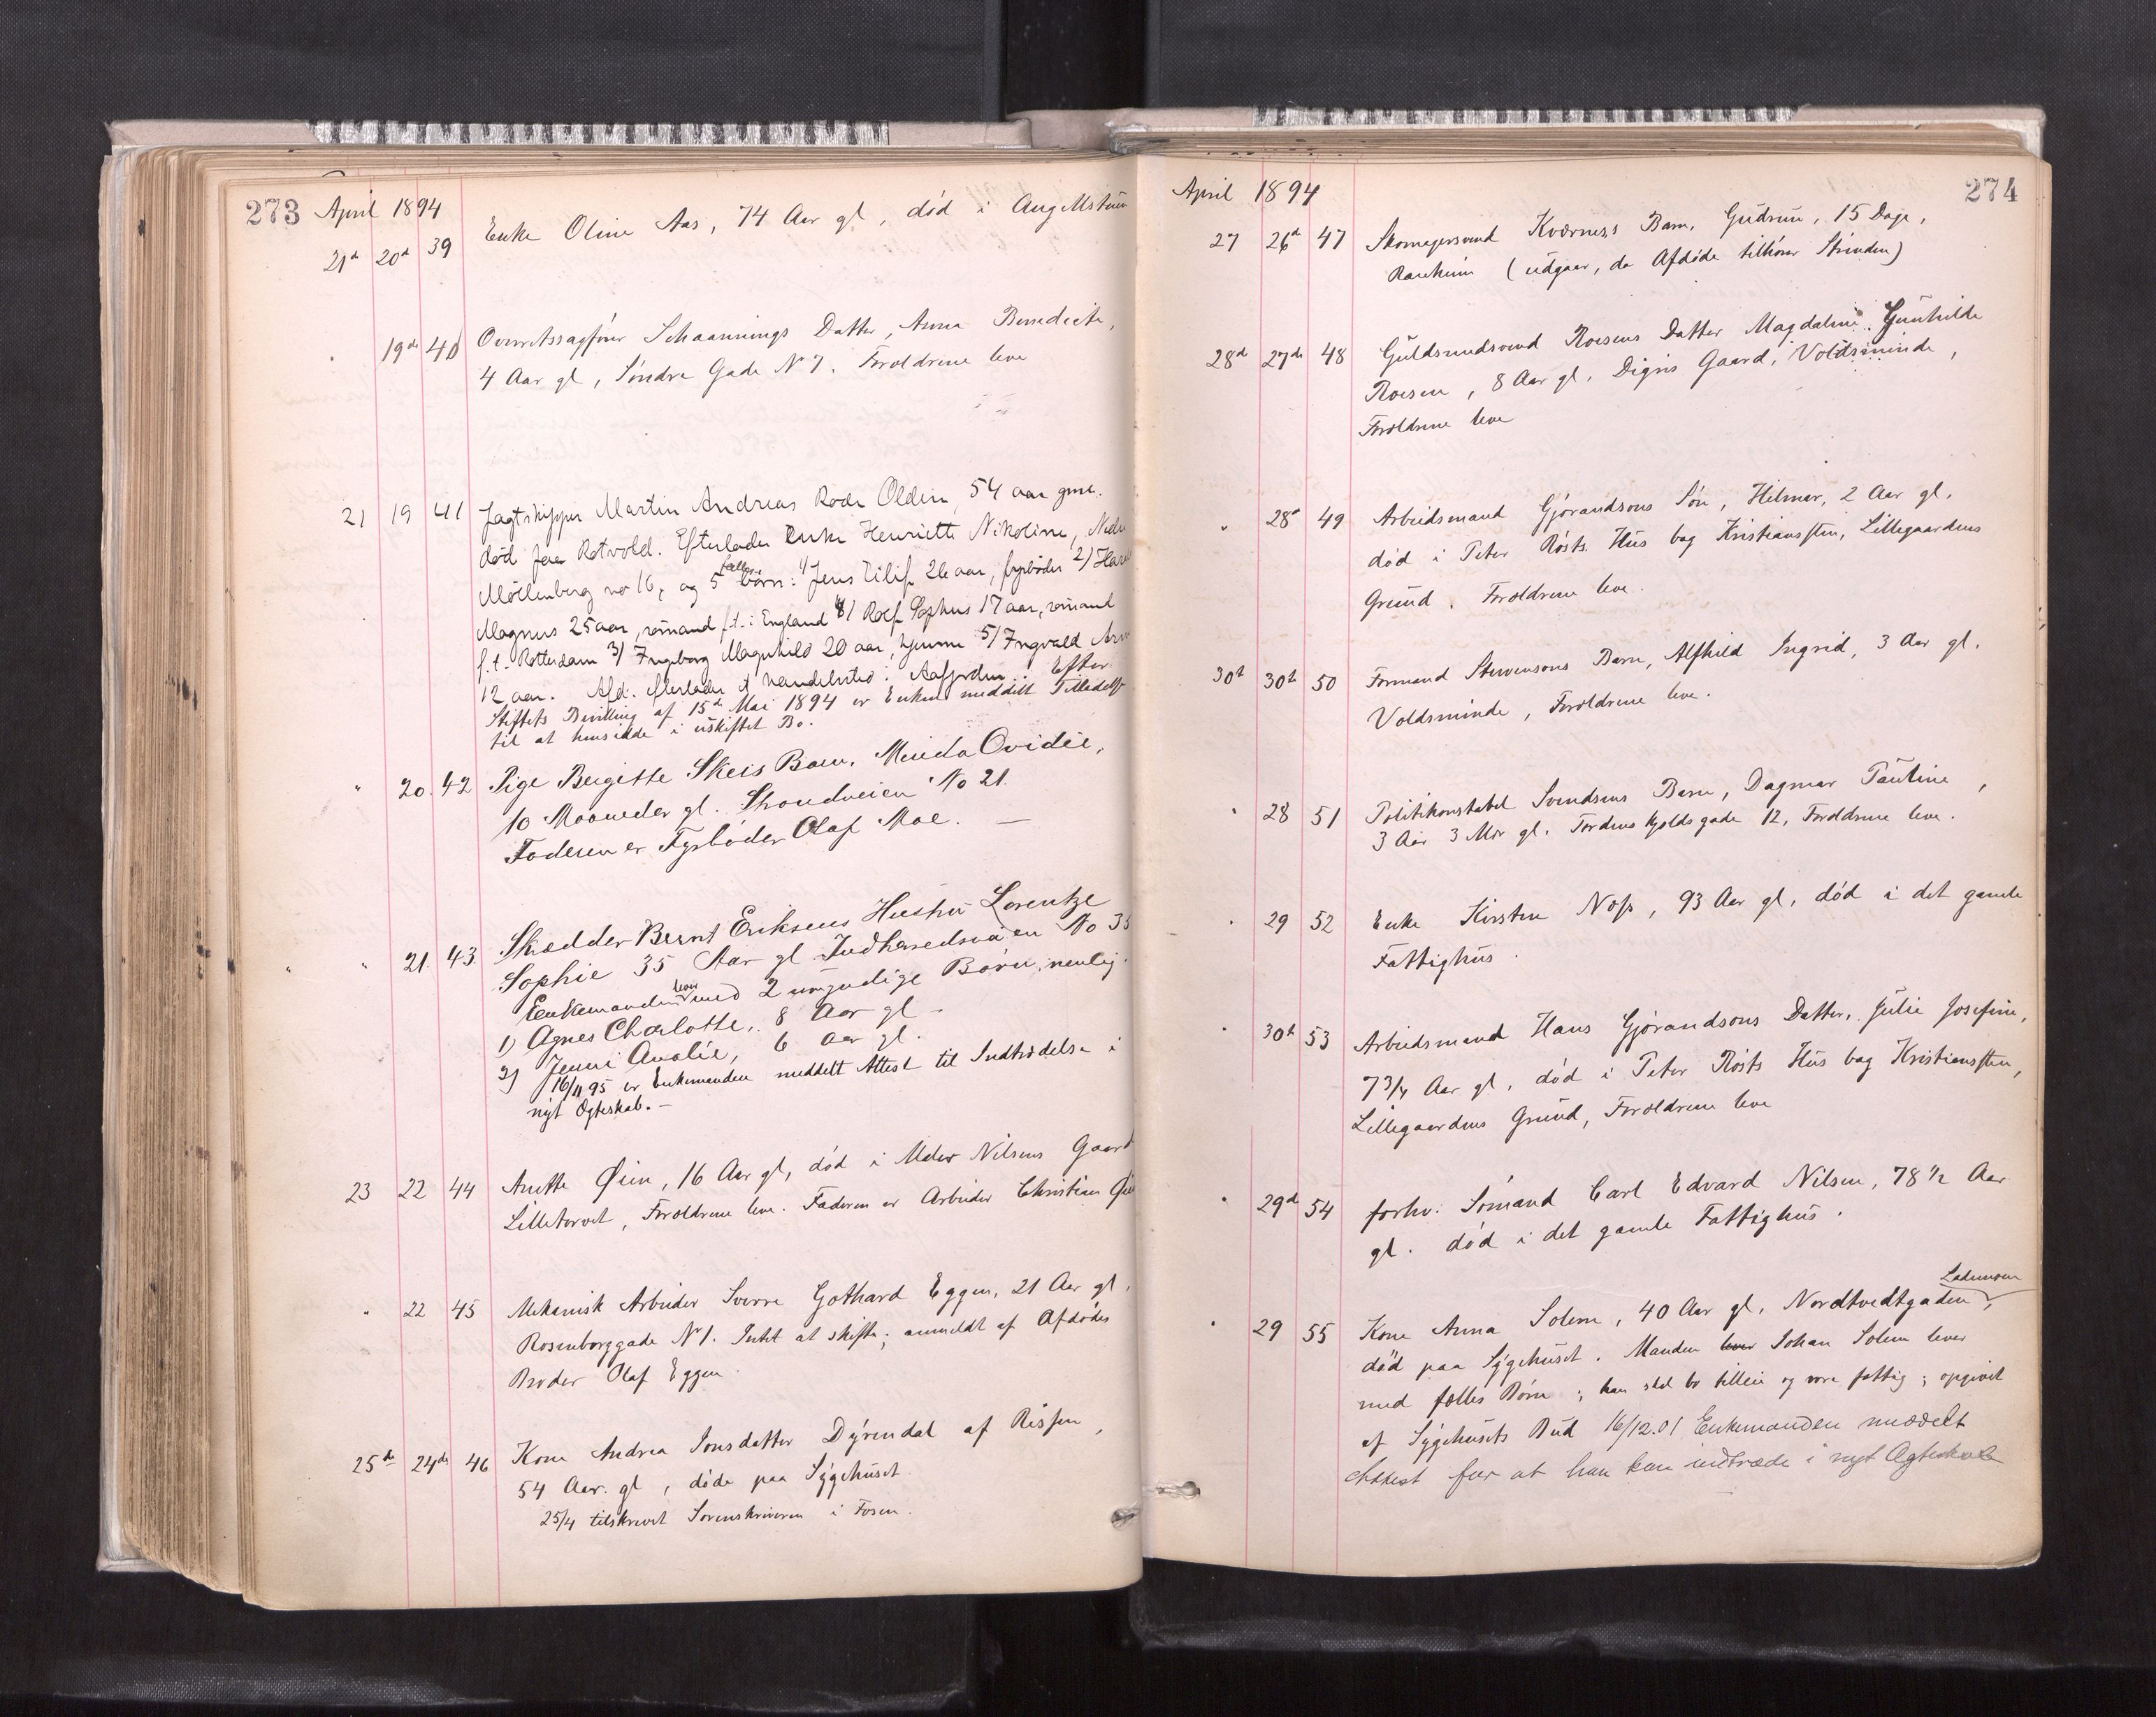 273 April 1894
21de 20de 39 Enke Oline Aas, 74 Aar gl, død i Angellstuen
" 19de 40 Overretssagfører Schaannings Datter, Anna Benedicte,
4 Aar gl, Søndre Gade No 7. Forældrene leve
21 19 41 Jagtskipper Martin Andreas Rode Olden, 54 aar gml.
død paa Rotvold. Efterlader Enke Henriette Nikoline, Nedre
Möllenberg no 16, og 5 fælles börn: 1/ Jens Eilif 26 aar, fyrbøder 2/ Har
Magnus 25 aar, sömand f.t. i England 4/ Rolf Sophus 17 aar, sömand
f.t. Rotterdam 3/ Ingeborg Magnhild 20 aar, hjemme 5/ Ingvald Arn
12 aar. Afd. efterlader et handelssted i Aafjorden. Efter
Stiftets Bevilling af 15de Mai 1894 er Enken meddelt Tilladelse
til at hensidde i uskiftet Bo.
" 20. 42 Pige Bergitte Skeis Barn, Minda Ovidie,
10 Maaneder gl. Strandveien No 21.
Faderen er Fyrbøder Olaf Moe. —
" " 21. 43. Skrædder Bernt Eriksens Hustru Lorentze
Sophie 35 Aar gl Indherredsveien No 35
Enkemanden lever med 2 umyndige Børn, nemlig.
1) Agnes Charlotte, 8 Aar gl —
2) Jenni Analie, 6 Aar gl.
16/11 95 er Enkemanden meddelt Attest til Indtrædelse i
nyt Ægteskab. —
23 22 44 Anette Øien, 16 Aar gl, død i Nilsens Gaard
Lilletorvet, Forældrene leve. Faderen er Arbeider Christian Øien
" 22 45 Mekanisk Arbeider Sverre Gothard Eggen, 21 Aar gl,
Rosenborggade No 1. Intet at skifte; anmeldt af Afdødes
Broder Olaf Eggen
25de 24de 46 Kone Andrea Jonsdatter Dyrendal af Rissen,
54 Aar gl, døde paa Sygehuset
25/4 tilskrevet Sorenskriveren i Fosen.
April 1894 274
27 26de 47 Skomagersvend Kværness Barn, Gudrun, 15 Dage,
Ranheim (udgaar, da Afdøde tilhører Strinden)
28de 27de 48 Guldsmedsvend Roesens Datter Magdalene Gunhilde
Roesen, 8 Aar gl. Digris Gaard, Voldsminde,
Forældrene leve
" 28de 49 Arbeidsmand Gjørandsons Søn, Hilmar, 2 Aar gl.
død i Peter Røsts Hus bag Kristiansten, Lillegaardens
Grund. Forældrene leve.
30te 30te 50 Formand Stevensons Barn, Alfhild Ingrid, 3 Aar gl.
Voldsminde, Forældrene leve.
" 28 51 Politikonstabel Svendsens Barn, Dagmar Pauline,
3 Aar 3 Mdr gl. Tordenskjoldsgade 12, Forældrene leve.
" 29 52 Enke Kirsten Noss, 93 Aar gl, død i det gamle
Fattighus.
" 30te 53 Arbeidsmand Hans Gjørandsons Datter, Julie Josefine,
7 3/4 Aar gl, død i Peter Røsts Hus bag Kristiansten,
Lillegaardens Grund, Forældrene leve
" 29de 54 forhv. Sømand Carl Edvard Nilsen, 78 1/2 Aar
gl. død i det gamle Fattighus.
" 29 55 Kone Anna Solem, 40 Aar gl, Nordtvedtgaden, Lademoen
død paa Sygehuset. Manden lever Johan Solem lever
med fælles Børn; han skal bo tilleie og være fattig; opgivet
af Sygehusets Bud 16/12.01 Enkemanden meddelt
Attest for at han kan indtræde i nyt Ægteskab